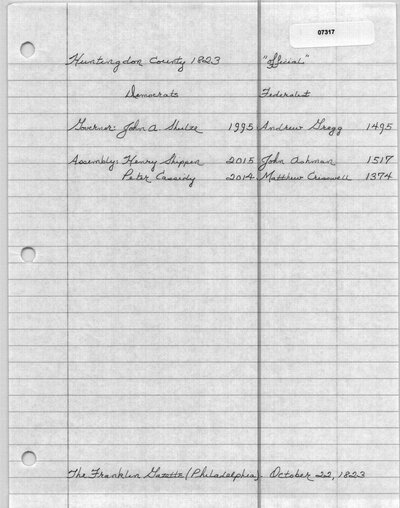 07317
Huntingdon County 1823 "Official"
Democrats Federalist
Governor: John A Shulze 1995 Andrew Gregg 1495
Assembly: Henry Shippen 2015 John Ashman 1517
Peter Cassidy 2014 Matthew Criswell 1374
The Franklin Gazette (Philadelphia) October 22, 1823